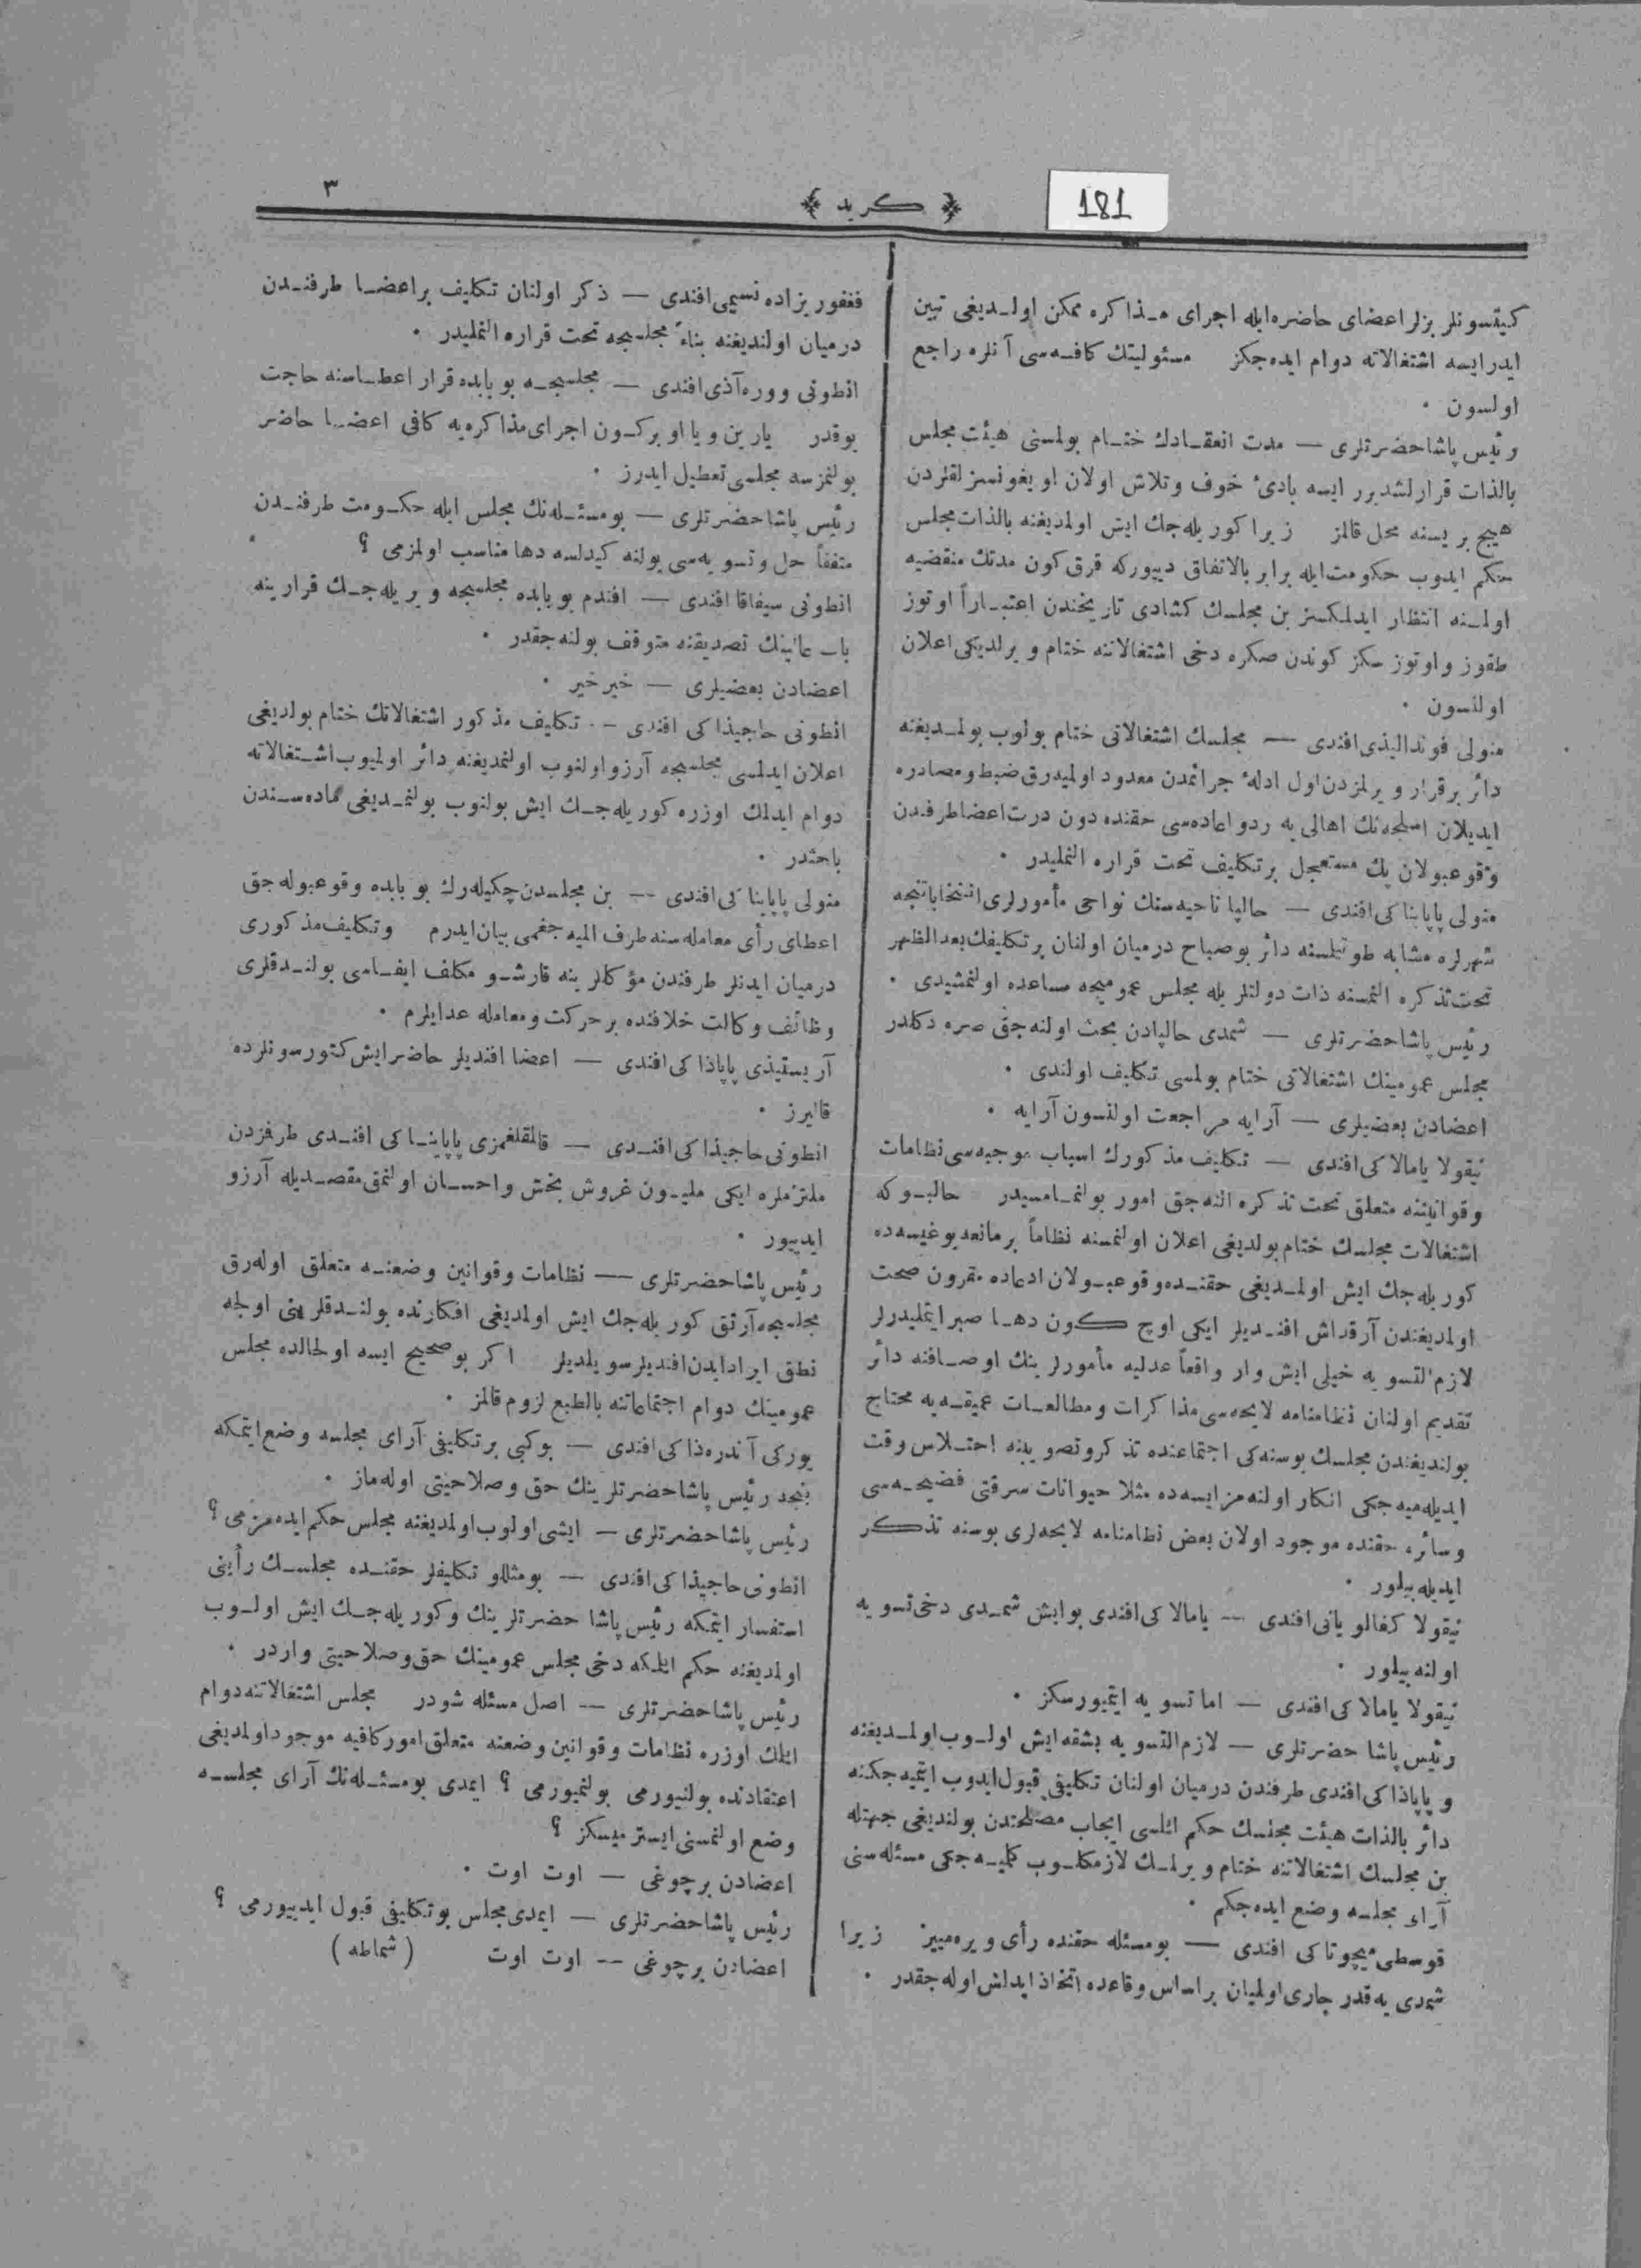 ٣
﴿ كريد ﴾
181
كيتسونلر بزلر اعضاى حاضره ايله اجراى مذاكره ممكن اولديغى تبين
ايدرايسه اشتغالاته دوام ايده‌جكز مسئوليتك كافه‌سى آنلره راجع
اولسون ٠
رئيس پاشا حضرتلرى — مدت انعقادك ختام بولمسنى هيئت مجلس
بالذات قرارلشديرر ايسه بادئ خوف وتلاش اولان اويغونسزلقلردن
هيچ بريسنه محل قالمز زيرا كوريله‌جك ايش اولمديغنه بالذات مجلس
حكم ايدوب حكومت ايله برابر بالاتفاق ديیوركه قرق كون مدتك منقضيه
اولسنه انتظار ايدلمكسزين مجلسك كشادى تاريخندن اعتباراً اوتوز
طقوز واوتوز سكز كوندن صكره دخى اشتغالاتنه ختام ويرلديكى اعلان
اولنسون ٠
منولى فوندالیذى افندى — مجلسك اشتغالاتى ختام بولوب بولمديغنه
دائر برقرار ويرلمزدن اول ادلۀ جرائمدن معدود اولميدرق ضبط ومصادره
ايديلان اسلحه‌نك اهالى يه رد واعاده‌سى حقنده دون درت اعضا طرفدن
وقوعبولان پك مستعجل برتكليف تحت قراره النمليدر ٠
منولى پاپايناكى افندى — حالپا ناحيه‌سنك نواحى مأمورلرى انتخاباتنجه
شهرلره مشابه طوتيلمسنه دائر بوصباح درميان اولنان برتكليفك بعدالظهر
تحت تذكره النمسنه ذات دولتلريله مجلس عموميجه مساعده اولنمشيدى ٠
رئيس پاشا حضرتلرى — شمدى حالپادن بحث اولنه‌جق صره دكلدر
مجلس عمومينك اشتغالاتى ختام بولمسى تكليف اولندى ٠
اعضادن بعضيلرى — آرايه مراجعت اولنسون آرايه ٠
نيقولا يامالاكى افندى — تكليف مذكورك اسباب موجبه‌سى نظامات
وقوانيننه متعلق تحت تذكره النه‌جق امور بولنمامسيدر حالبوكه
اشتغالات مجلسك ختام بولديغى اعلان اولنمسنه نظاماً برمانعه يوغيسه‌ده
كوريله‌جك ايش اولمديغى حقنده وقوعبولان ادعاده مقرون صحت
اولمديغندن آرقداش افنديلر ايكى اوچ كون دها صبر ايتمليدرلر
لازم التسويه خيلى ايش وار واقعاً عدليه مأمورلرينك اوصافنه دائر
تقديم اولنان نظامنامه لايحه‌سى مذاكرات ومطالعات عميقه‌يه محتاج
بولنديغندن مجلسك بوسنه‌كى اجتماعنده تذكر وتصويبنه اختلاس وقت
ايديله‌ميه‌جكى انكار اولنه‌مز ايسه‌ده مثلا حيوانات سرقتى فضيحه‌سى
وسائره حقنده موجود اولان بعض نظامنامه لايحه‌لرى بوسنه تذكر
ايديله‌بيلور ٠
نيقولا كفالويانى افندى — يامالاكى افندى بوايش شمدى دخى تسويه
اولنه‌بيلور ٠
نيقولا يامالاكى افندى — اما تسويه ايتميورسكز ٠
رئيس پاشا حضرتلرى — لازم التسويه بشقه ايش اولوب اولمديغنه
و پاپاذاكى افندى طرفندن درميان اولنان تكليفى قبول ايدوب ايتميه‌جكنه
دائر بالذات هيئت مجلسك حكم ائلمى ايجاب مصلحتدن بولنديغى جهتله
بن مجلسك اشتغالاتنه ختام ويرلمك لازمكلوب كلميه‌جكى مسئله‌سنى
آراى مجلسه وضع ايده‌جكم ٠
قوسطى ميچوتاكى افندى — بومسئله حقنده رأى ويره‌مييز زيرا
شمدى يه قدر جارى اولميان براساس وقاعده اتخاذ ايدلمش اوله‌جقدر ٠
فغفوريزاده نسيمى افندى — ذكر اولنان تكليف براعضا طرفندن
درميان اولنديغنه بناءً مجلسجه تحت قراره النمليدر ٠
انطونى ووره‌آذى افندى — مجلسجه بوبابده قرار اعطاسنه حاجت
يوقدر يارين ويا اوبركون اجراى مذاكره‌يه كافى اعضا حاضر
بولنمزسه مجلسى تعطيل ايدرز ٠
رئيس پاشا حضرتلرى — بومسئله‌نك مجلس ايله حكومت طرفندن
متفقاً حل وتسويه‌سى يولنه كيدلسه دها مناسب اولمزمى ؟
انطونى سيفاقا افندى — افندم بوبابده مجلسجه ويريله‌جك قرارينه
باب عالينك تصديقنه متوقف بولنه‌جقدر ٠
اعضادن بعضيلرى — خير خير ٠
انطونى حاجيذاكى افندى — تكليف مذكور اشتغالاتك ختام بولديغى
اعلان ايدلمسى مجلسجه آرزو اولنوب اولنمديغنه دائر اولميوب اشتغالاته
دوام ايدلمك اوزره كوريله‌جك ايش بولنوب بولنمديغى ماده‌سندن
باحثدر ٠
منولى پاپايناكى افندى — بن مجلسدن چكيله‌رك بوبابده وقوعبوله‌جق
اعطاى رأى معامله‌سنه طرف الميه‌جغمى بيان ايدرم وتكليف مذكورى
درميان ايدنلر طرفندن مؤكللرينه قارشو مكلف ايفاسى بولندقلرى
وظائف وكالت خلافنده برحركت ومعامله عد ايلرم ٠
آريستيذى پاپاذاكى افندى — اعضا افنديلر حاضر ايش كتورسونلرده
قالیرز ٠
انطونى حاجيذاكى افندى — قالمقلغمزى پاپايناكى افندى طرفزدن
ملتزملره ايكى مليون غروش بخش واحسان اولنمق مقصديله آرزو
ايديیور ٠
رئيس پاشا حضرتلرى — نظامات وقوانين وضعنه متعلق اوله‌رق
مجلسجه آرتق كوريله‌جك ايش اولمديغى افكارنده بولندقلرينى اولجه
نطق ايراد ايدن افنديلر سويلديلر اكر بوصحيح ايسه اولحالده مجلس
عمومينك دوام اجتماعاتنه بالطبع لزوم قالمز ٠
يوركى آندره‌ذاكى افندى — بوكبى برتكليفى آراى مجلسه وضع ايتمكه
بنجه رئيس پاشا حضرتلرينك حق وصلاحيتى اوله‌ماز ٠
رئيس پاشا حضرتلرى — ايشى اولوب اولمديغنه مجلس حكم ايده‌مزمى ؟
انطونى حاجيذاكى افندى — بومثللو تكليفلر حقنده مجلسك رأينى
استفسار ايتمكه رئيس پاشا حضرتلرينك وكوريله‌جك ايش اولوب
اولمديغنه حكم ايلمكه دخى مجلس عمومينك حق وصلاحيتى واردر ٠
رئيس پاشا حضرتلرى — اصل مسئله شودر مجلس اشتغالاتنه دوام
ايلمك اوزره نظامات وقوانين وضعنه متعلق امور كافيه موجود اولمديغى
اعتقادنده بولنيورمى بولنميورمى ؟ ايمدى بومسئله‌نك آراى مجلسه
وضع اولنمسنى ايسترميسكز ؟
اعضادن برچوغى — اوت اوت ٠
رئيس پاشا حضرتلرى — ايمدى مجلس بوتكليفى قبول ايديیورمى ؟
اعضادن برچوغى — اوت اوت ( شماطه )